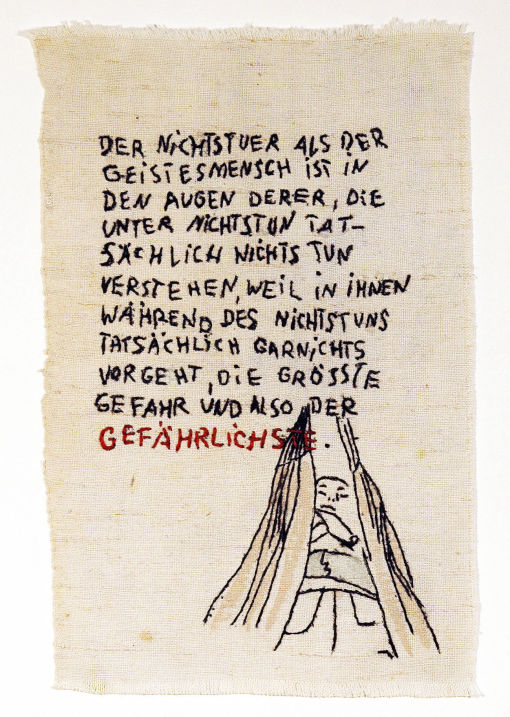 DER NiCHTSTUER ALS DER
GEiSTESMENSCH iST iN
DEN AUGEN DERER, DiE
UNTER NiCHTSTUN TAT-
SÄCHLiCH NiCHTS TUN
VERSTEHEN, WEiL iN iHNEN
WÄHREND DES NiCHTSTUNS
TATSÄCHLiCH GARNiCHTS
VORGEHT, DiE GRÖSSTE
GEFAHR UND ALSO DER
GEFÄHRLiCHSTE.